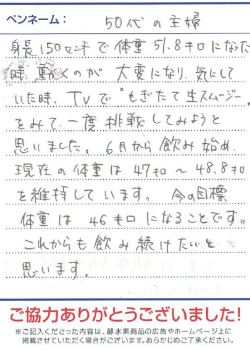 ペンネーム： 50代の主婦
身長150センチで体重51.8キロになった
時、動くのが大変になり、気にして
いた時、TVで"もぎたて生スムージー
をみて、一度挑戦してみようと
思いました。6月から飲み始め、
現在の体重は47キロ〜48.8キロ
を維持しています。今の目標
体重は46キロになることです。
これからも飲み続けたいと
思います。
ご協力ありがとうございました！
※ご記入くださった内容は、酵水素商品の広告やホームページ上に
掲載させていただく場合がございます。あらかじめご了承ください。